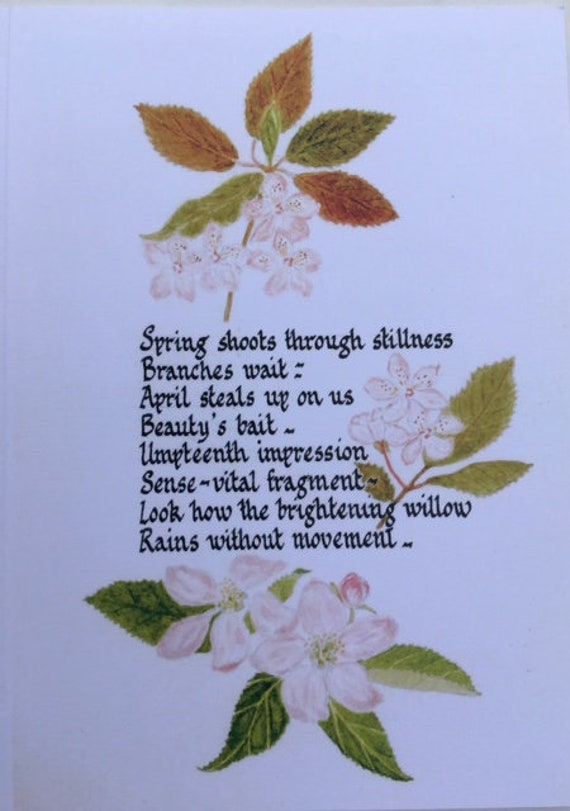 Spring shoots through stillness
Branches wait ~
April steals up on us
Beauty's bait ~
Umpteenth impression
Sense~vital fragment ~
Look how the brightening willow
Rains without movement ~